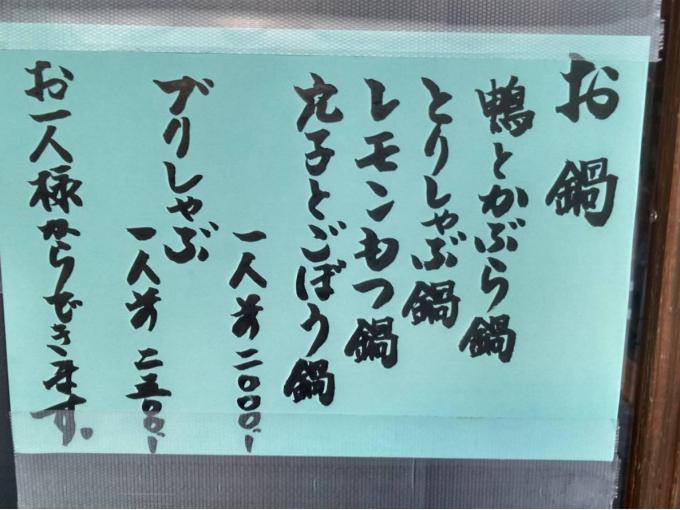 お鍋
鴨とかぶら鍋
とりしゃぶ鍋
レモンもつ鍋
穴子とごぼう鍋
一人前二〇〇〇、-
ブリしゃぶ
一人前二五〇〇、-
お一人様からできます。